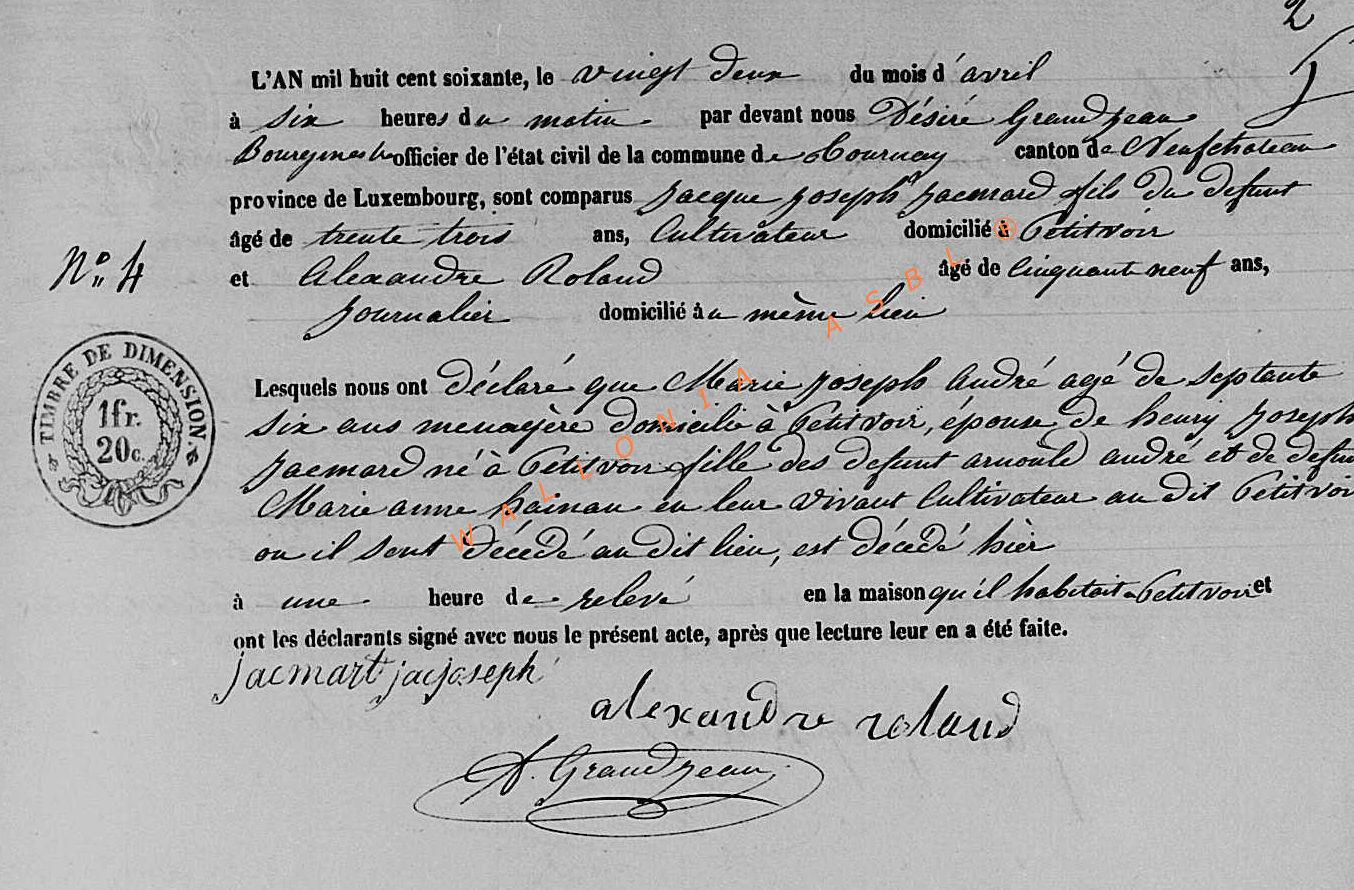 2
5
L'AN mil huit cent soixante, le vingt deux du mois d'avril
à six heures du matin par devant nous Désiré Grandjean
Bourgmestre officier de l'état civil de la commune de Tournay canton de Neufchateau
province de Luxembourg, sont comparus Jacque Joseph Jacmard fils du defunt
âgé de trente trois ans, Cultivateur domicilié à Petitvoir
N° 4
et Alexandre Roland âgé de Cinquant neuf ans,
journalier domicilié àu même lieu
TIMBRE DE DIMENSION.
1fr.
20c.
Lesquels nous ont déclaré que Marie Joseph André agé de septante
six ans menagère domicilié à Petitvoir, épouse de henry Joseph
Jacmard né à Petitvoir fille des defunt arnould andré et de defun
Marie anne hainau en leur vivant Cultivateur au dit Petitvoir
ou il sont décédé au dit lieu, est décédé hier
à une heure de relevé en la maison qu'il habitait a Petitvoir et
ont les déclarants signé avec nous le présent acte, après que lecture leur en a été faite.
jacmart jacjoseph
alexandre roland
D. Grandjean
WALLONIA ASBL ®